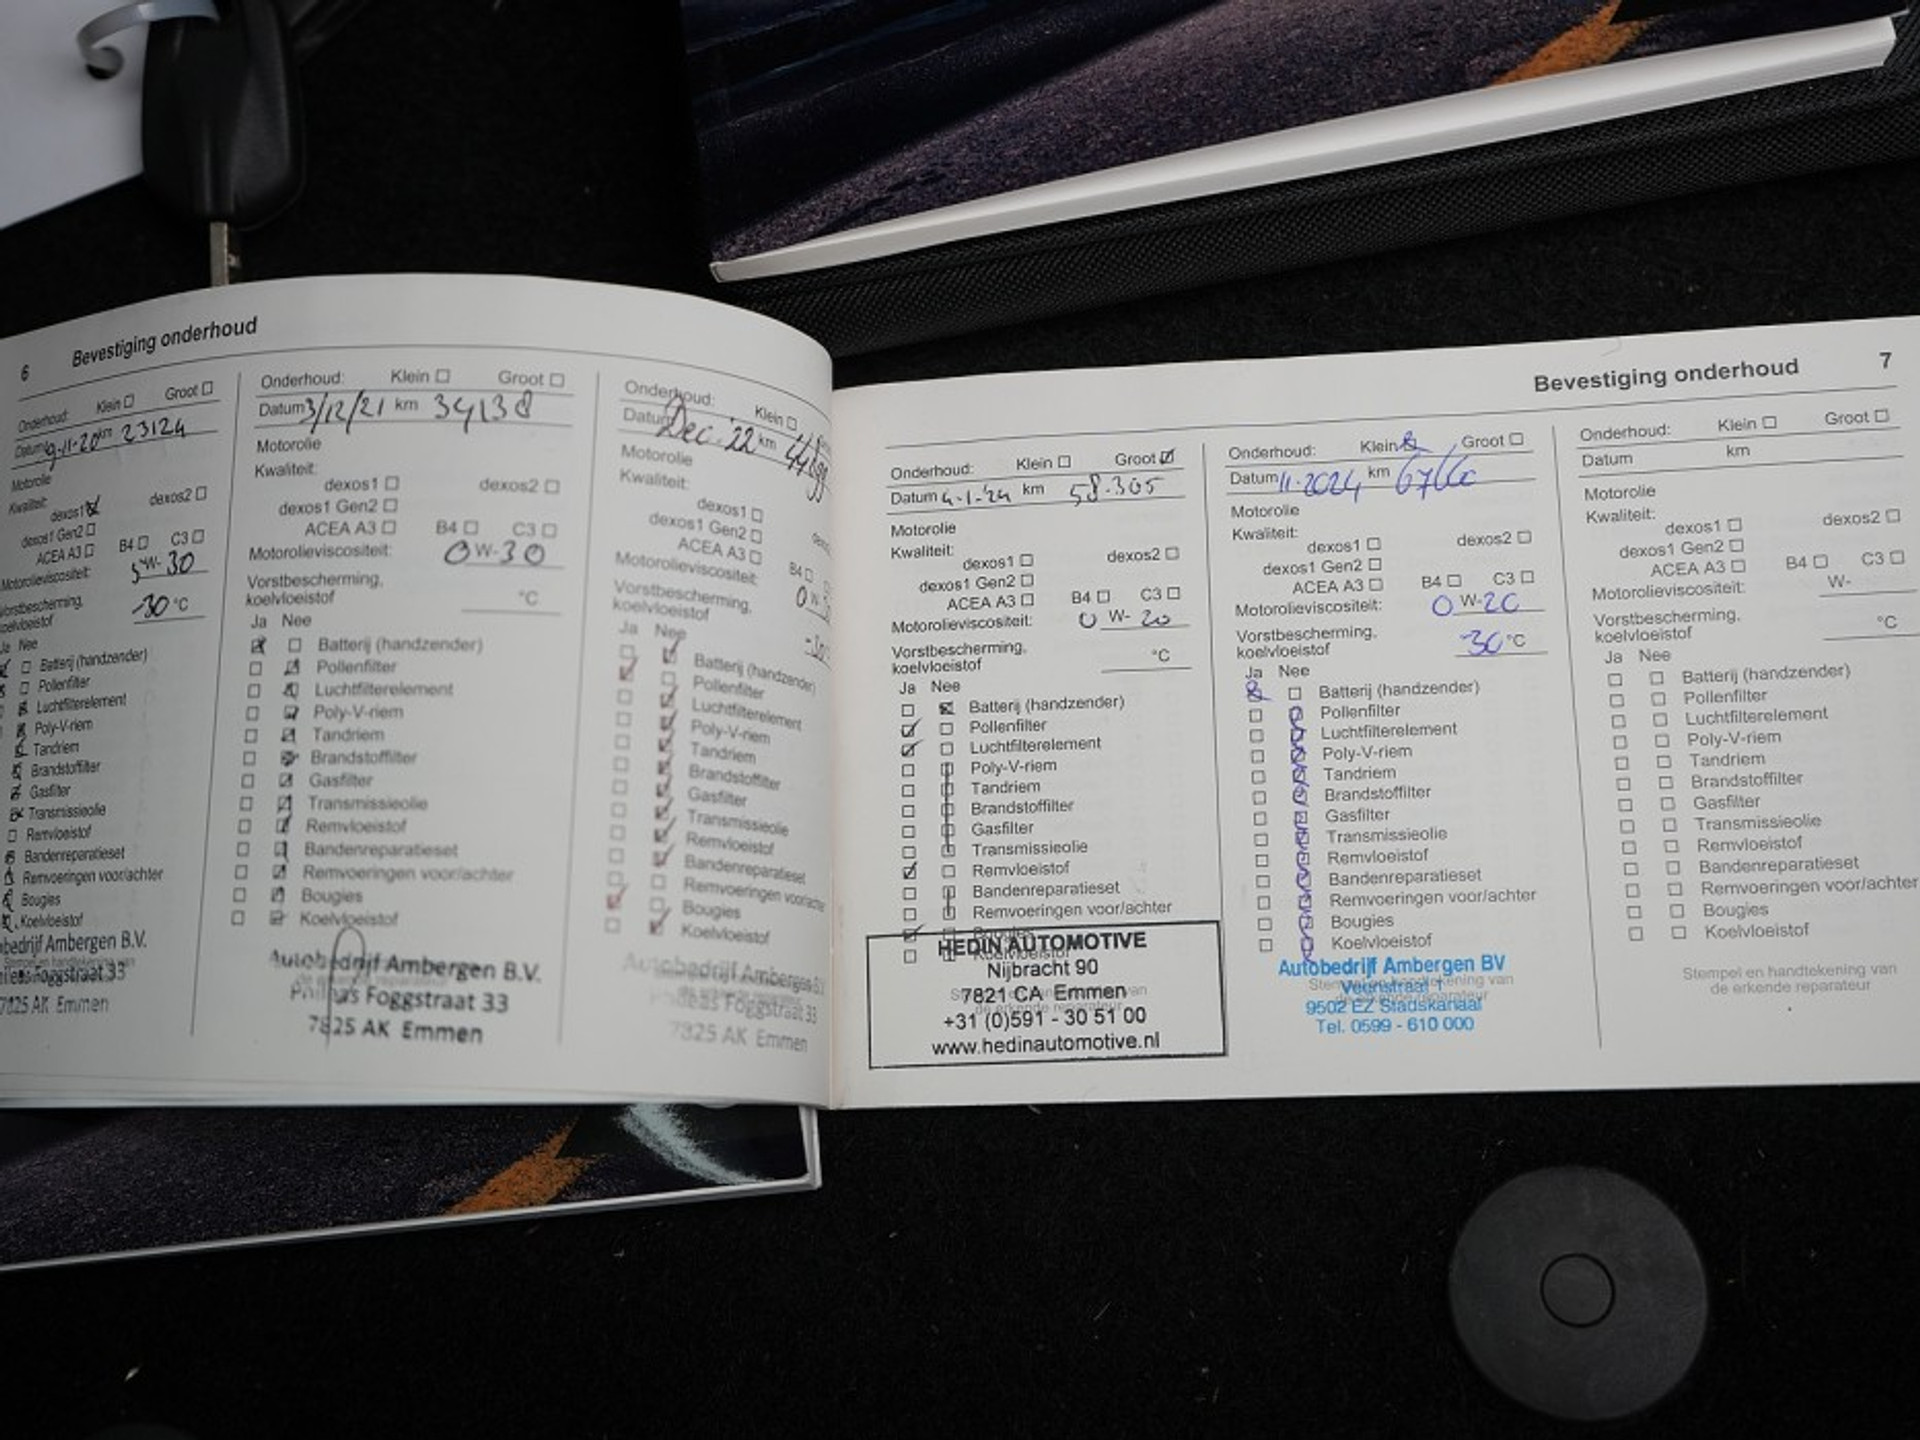 6 Bevestiging onderhoud
Onderhoud: Klein Groot
Datum 9-11-20 km 23124
Motorolie
Kwaliteit:
dexos1 dexos2
dexos1 Gen2
ACEA A3 B4 C3
Motorolieviscositeit: 5 W- 30
Vorstbescherming,
koelvloeistof -30 °C
Ja Nee
Batterij (handzender)
Pollenfilter
Luchtfilterelement
Poly-V-riem
Tandriem
Brandstoffilter
Gasfilter
Transmissieolie
Remvloeistof
Bandenreparatieset
Remvoeringen voor/achter
Bougies
Koelvloeistof
Ambergen B.V.
Foggstraat 33
7825 AK Emmen
Onderhoud: Klein Groot
Datum 3/12/21 km 34138
Motorolie
Kwaliteit:
dexos1 dexos2
dexos1 Gen2
ACEA A3 B4 C3
Motorolieviscositeit: 0 W- 30
Vorstbescherming,
koelvloeistof °C
Ja Nee
Batterij (handzender)
Pollenfilter
Luchtfilterelement
Poly-V-riem
Tandriem
Brandstoffilter
Gasfilter
Transmissieolie
Remvloeistof
Bandenreparatieset
Remvoeringen voor/achter
Bougies
Koelvloeistof
Autobedrijf Ambergen B.V.
Phileas Foggstraat 33
7825 AK Emmen
Onderhoud: Klein
Datum Dec. '22 km
Motorolie
Kwaliteit:
dexos1
dexos1 Gen2
ACEA A3 B4
Motorolieviscositeit: 0 W-
Vorstbescherming,
koelvloeistof
Ja Nee
Batterij (handzender)
Pollenfilter
Luchtfilterelement
Poly-V-riem
Tandriem
Brandstoffilter
Gasfilter
Transmissieolie
Remvloeistof
Bandenreparatieset
Remvoeringen voor/achter
Bougies
Koelvloeistof
Autobedrijf Ambergen
Phileas Foggstraat 33
7825 AK Emmen
Bevestiging onderhoud 7
Onderhoud: Klein Groot
Datum 4-1-'24 km 58.305
Motorolie
Kwaliteit:
dexos1 dexos2
dexos1 Gen2
ACEA A3 B4 C3
Motorolieviscositeit: 0 W- 20
Vorstbescherming,
koelvloeistof °C
Ja Nee
Batterij (handzender)
Pollenfilter
Luchtfilterelement
Poly-V-riem
Tandriem
Brandstoffilter
Gasfilter
Transmissieolie
Remvloeistof
Bandenreparatieset
Remvoeringen voor/achter
Bougies
Koelvloeistof
HEDIN AUTOMOTIVE
Nijbracht 90
7821 CA Emmen
+31 (0)591 - 30 51 00
www.hedinautomotive.nl
Onderhoud: Klein Groot
Datum 11-2024 km
Motorolie
Kwaliteit:
dexos1 dexos2
dexos1 Gen2
ACEA A3 B4 C3
Motorolieviscositeit: 0 W- 20
Vorstbescherming,
koelvloeistof -30 °C
Ja Nee
Batterij (handzender)
Pollenfilter
Luchtfilterelement
Poly-V-riem
Tandriem
Brandstoffilter
Gasfilter
Transmissieolie
Remvloeistof
Bandenreparatieset
Remvoeringen voor/achter
Bougies
Koelvloeistof
Autobedrijf Ambergen BV
Veenstraat 1
9502 EZ Stadskanaal
Tel. 0599 - 610 000
Onderhoud: Klein Groot
Datum km
Motorolie
Kwaliteit:
dexos1 dexos2
dexos1 Gen2
ACEA A3 B4 C3
Motorolieviscositeit: W-
Vorstbescherming,
koelvloeistof °C
Ja Nee
Batterij (handzender)
Pollenfilter
Luchtfilterelement
Poly-V-riem
Tandriem
Brandstoffilter
Gasfilter
Transmissieolie
Remvloeistof
Bandenreparatieset
Remvoeringen voor/achter
Bougies
Koelvloeistof
Stempel en handtekening van
de erkende reparateur